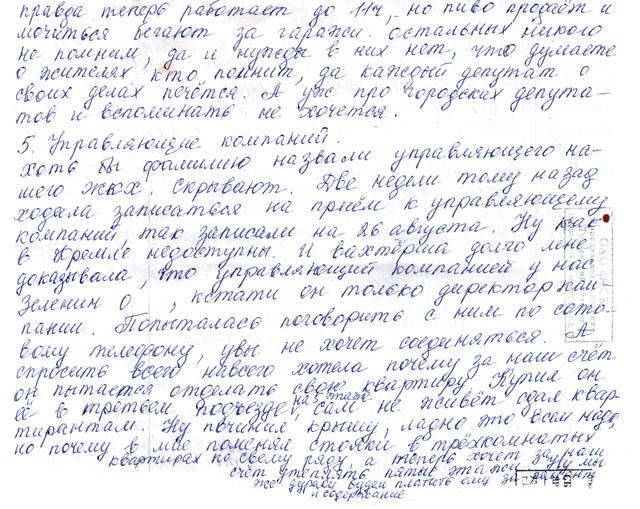 правда теперь работает до 11ч, но пиво продаёт и
мочиться бегают за гаражи. Остальных никого
не помним, да и нужды в них нет, что думаете
о жителях кто помнит, да каждый депутат о
своих делах печётся. А уж про городских депута-
тов и вспоминать не хочется.
5. Управляющие компаний.
Хоть бы фамилию назвали управляющего на-
шего ЖКХ. Скрывают. Две недели тому назад
ходила записаться на приём к управляющему
компаний, так записали на 26 августа. Ну как
в Кремле недоступны. И вахтёрша долго мне
доказывала, что управляющий компанией у нас
Зеленин О , кстати он только директор ком
пании. Попыталась поговорить с ним по сото-
вому телефону, увы не хочет соединяться. А
спросить всего навсего хотела почему за наш счёт
он пытается отделать свою квартиру. Купил он
её в третьем подъезде, на 5 этаже сам не живёт сдал квар
тирантам. Ну починил крышу, ладно это всем надо,
но почему в мае поменял стояки в трёхкомнатых
квартирах по своему ряду, а теперь хочет за наш
счёт утеплять пятый этаж. Ну мы
же дураки будем платить ему за
и содержание